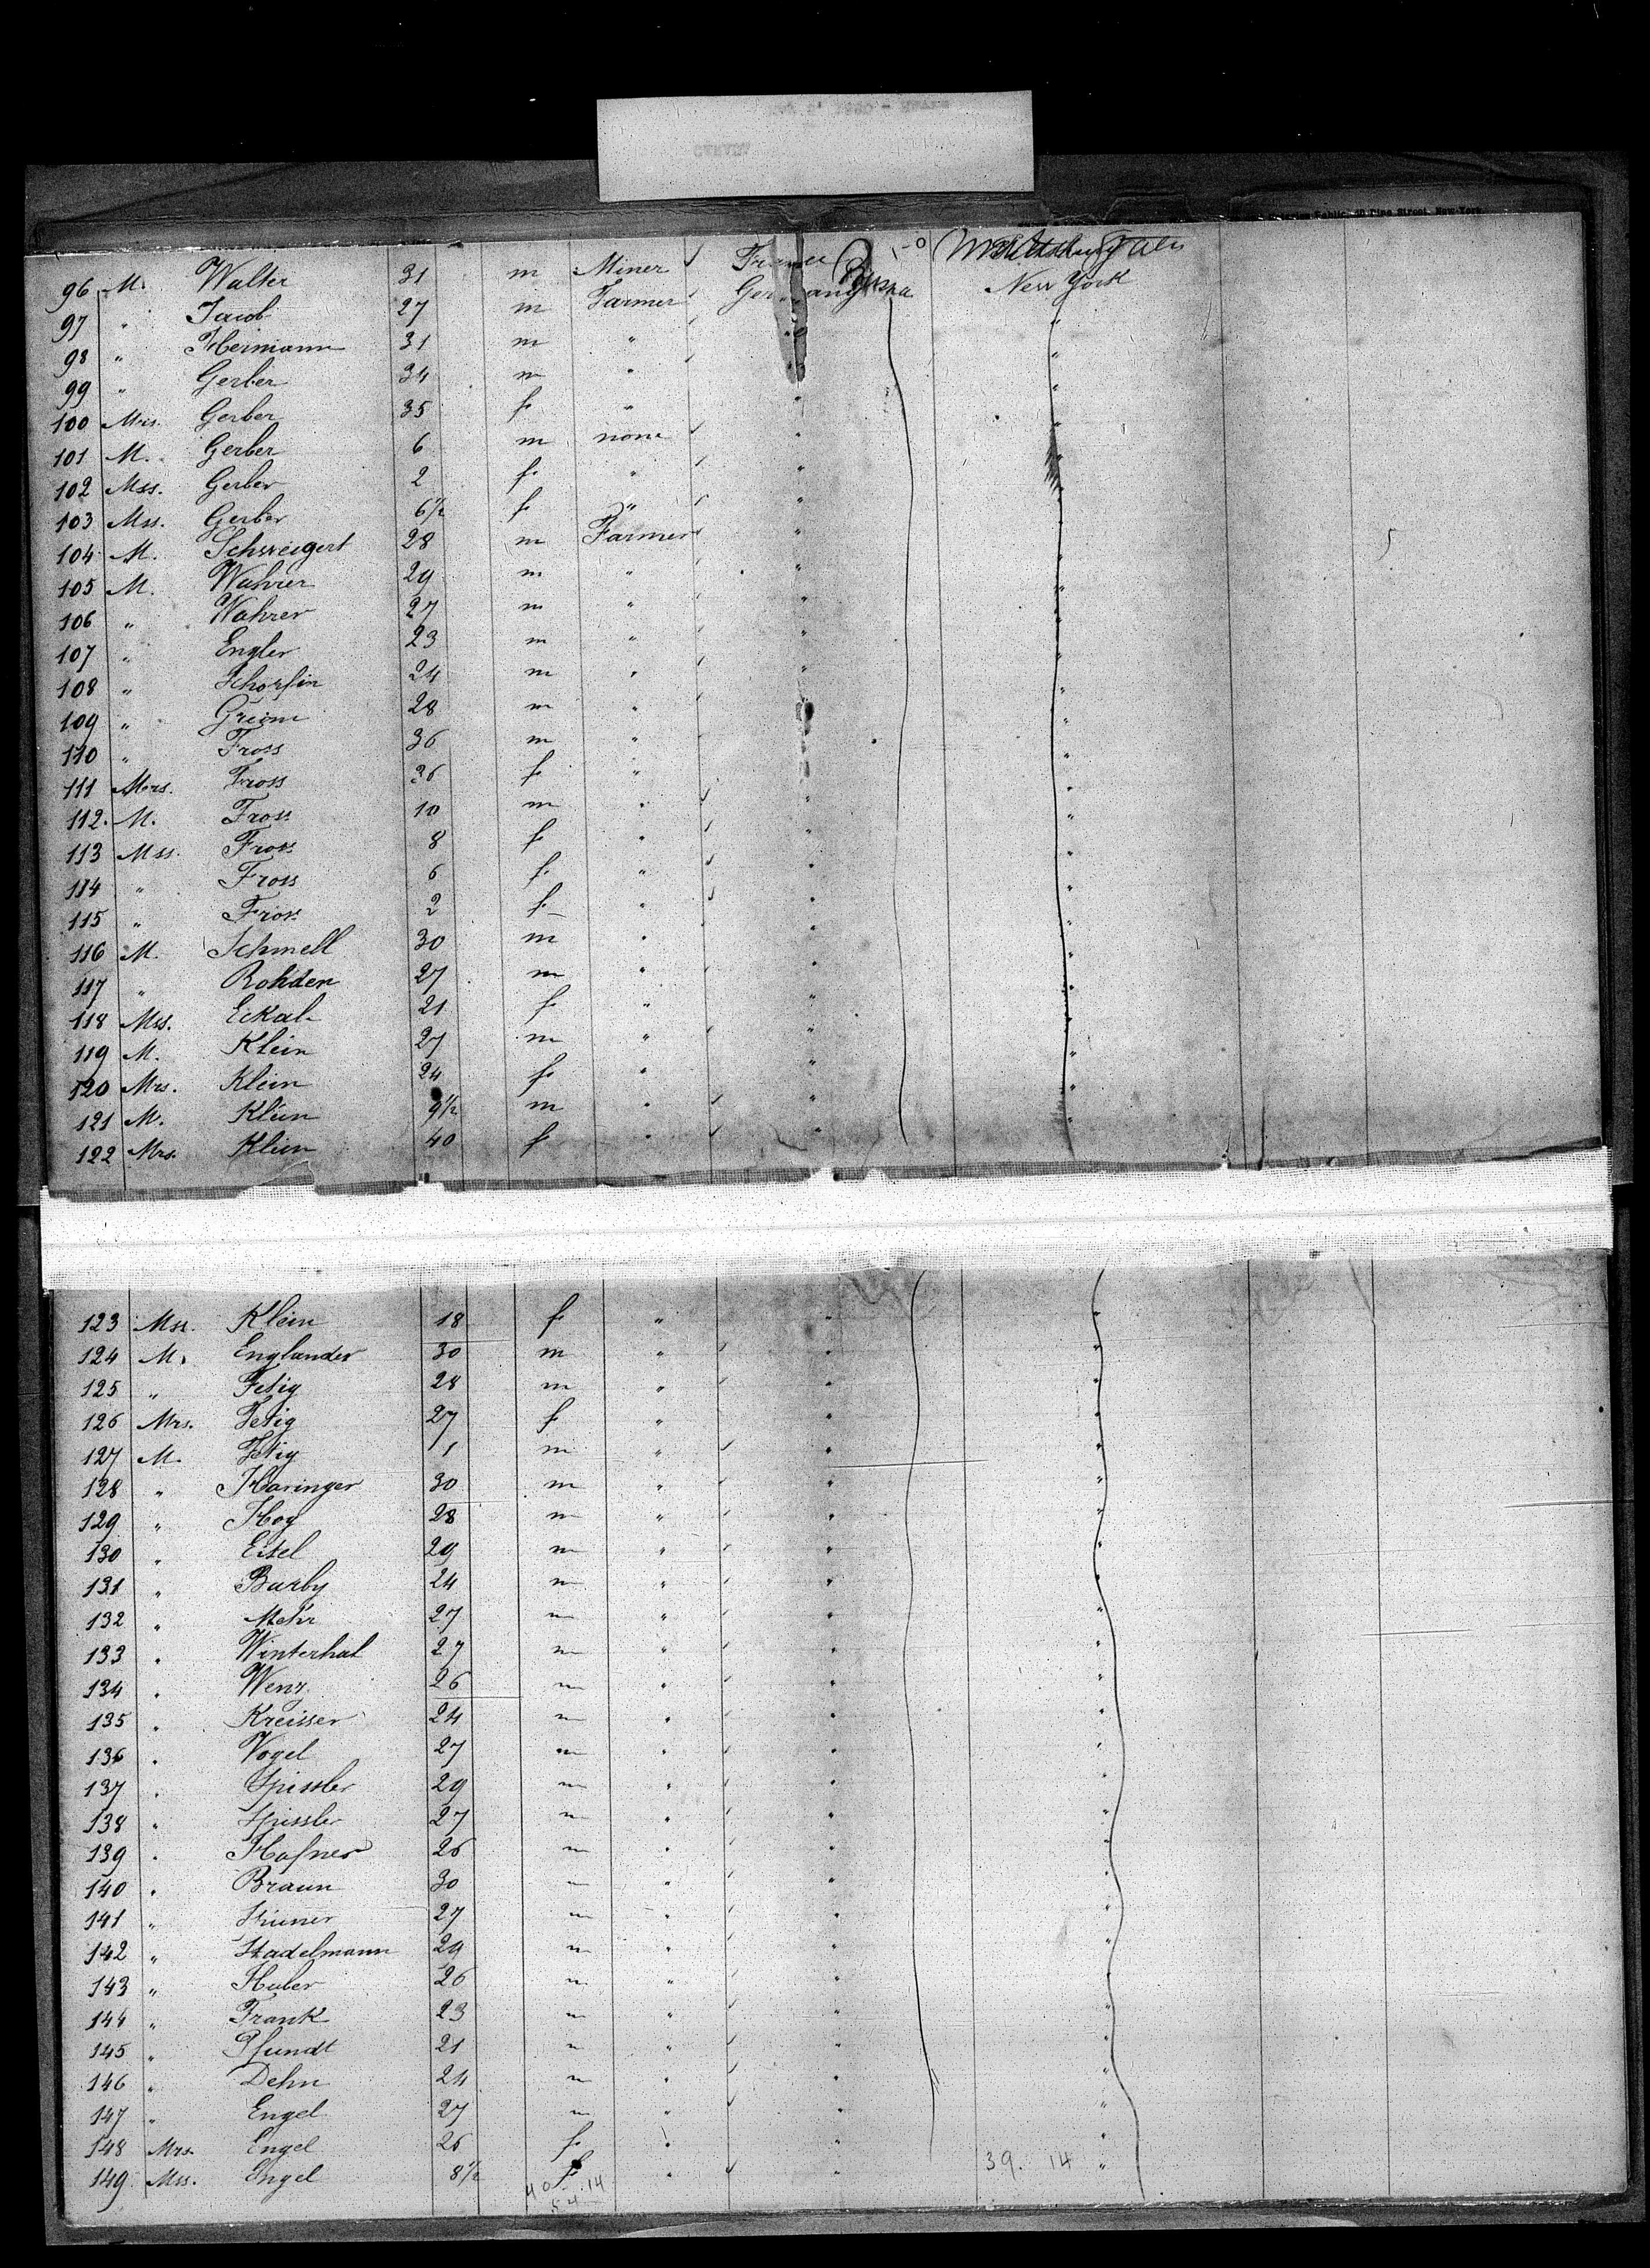 Notary Public, 40 Pine Street, New-York
96 M. Walter 31 m Miner France
97 " Jacob 27 m Farmer Germany New York
98 " Heinmann 31 m " " "
99 " Gerber 34 m " " "
100 Mrs. Gerber 35 f " " "
101 M. Gerber 6 m none " "
102 Mss. Gerber 2 f " " "
103 Mss. Gerber 6/12 f " " "
104 M. Schweigert 28 m Farmer " "
105 M. Wahrer 29 m " " "
106 " Wahrer 27 m " " "
107 " Engler 23 m " " "
108 " Schorfin 24 m " " "
109 " Greim 28 m " " "
110 " Fross 36 m " " "
111 Mrs. Fross 36 f " " "
112. M. Fross 10 m " " "
113 Mss. Fross 8 f " " "
114 " Fross 6 f " " "
115 " Fross 2 f " " "
116 M. Schmell 30 m " " "
117 " Rohden 27 m " " "
118 Mss. Eckal 21 f " " "
119 M. Klein 27 m " " "
120 Mrs. Klein 24 f " " "
121 M. Klein 9/12 m " " "
122 Mrs. Klein 40 f " " "
123 Mss. Klein 18 f " " "
124 M. Englander 30 m " " "
125 " Fetig 28 m " " "
126 Mrs. Fetig 27 f " " "
127 M. Fetig 1 m " " "
128 " Haringer 30 m " " "
129 " Hog 28 m " " "
130 " Eisel 29 m " " "
131 " Barby 24 m " " "
132 " Mehr 27 m " " "
133 " Winterhal 27 m " " "
134 " Wenz 26 m " " "
135 " Kreisser 24 m " " "
136 " Vogel 27 m " " "
137 " Spissler 29 m " " "
138 " Spissler 27 m " " "
139 " Hafner 26 m " " "
140 " Braun 30 m " " "
141 " 27 m " " "
142 " Stadelmann 29 m " " "
143 " Huber 26 m " " "
144 " Frank 23 m " " "
145 " Pfundt 21 m " " "
146 " Dehn 24 m " " "
147 " Engel 27 m " " "
148 Mrs. Engel 26 f " " "
149 Mss. Engel 8/12 f " " "
39. 14
40 14